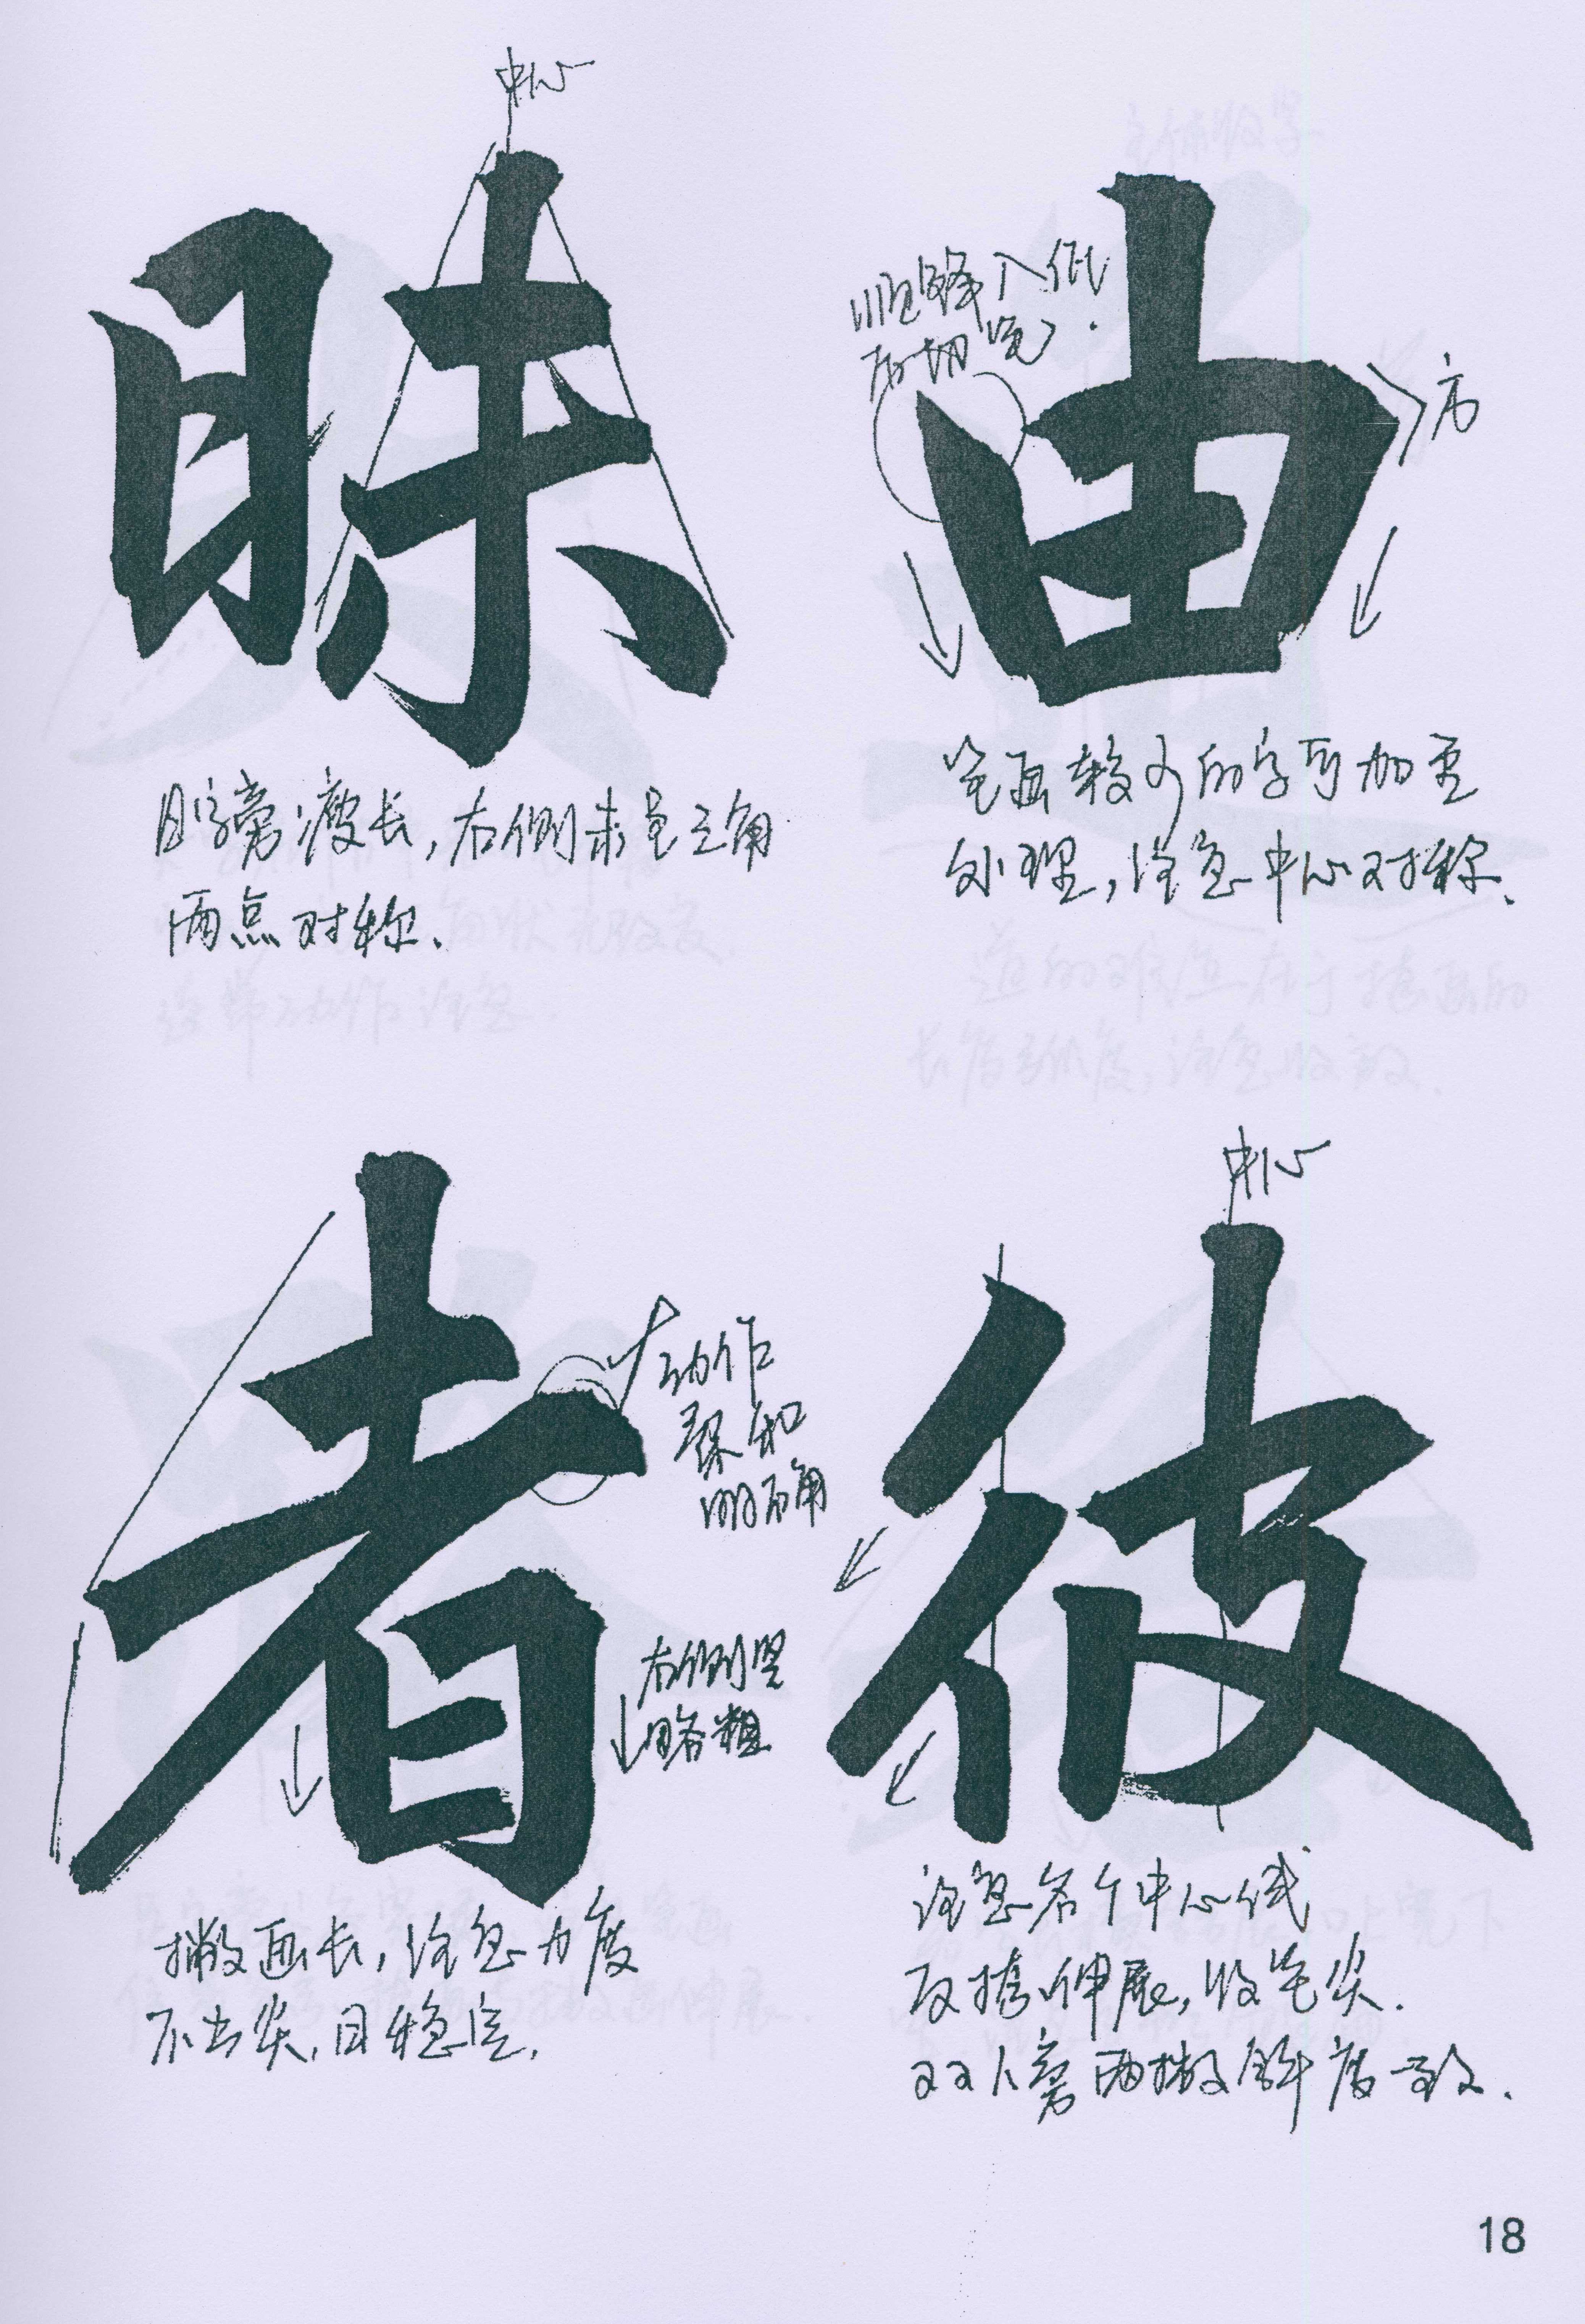 中心
昧
日字旁瘦长,右侧未呈三角
两点对称.
由
顺锋入纸
后切笔.
方
笔画较少的字可加重
处理,注意中心对称.
者
动作
柔和
明确
右侧竖
略粗
撇画长,注意力度
不出尖,日稳定.
中心
彼
注意各个中心线
反捺伸展,收笔尖.
双人旁两撇斜度一致.
18